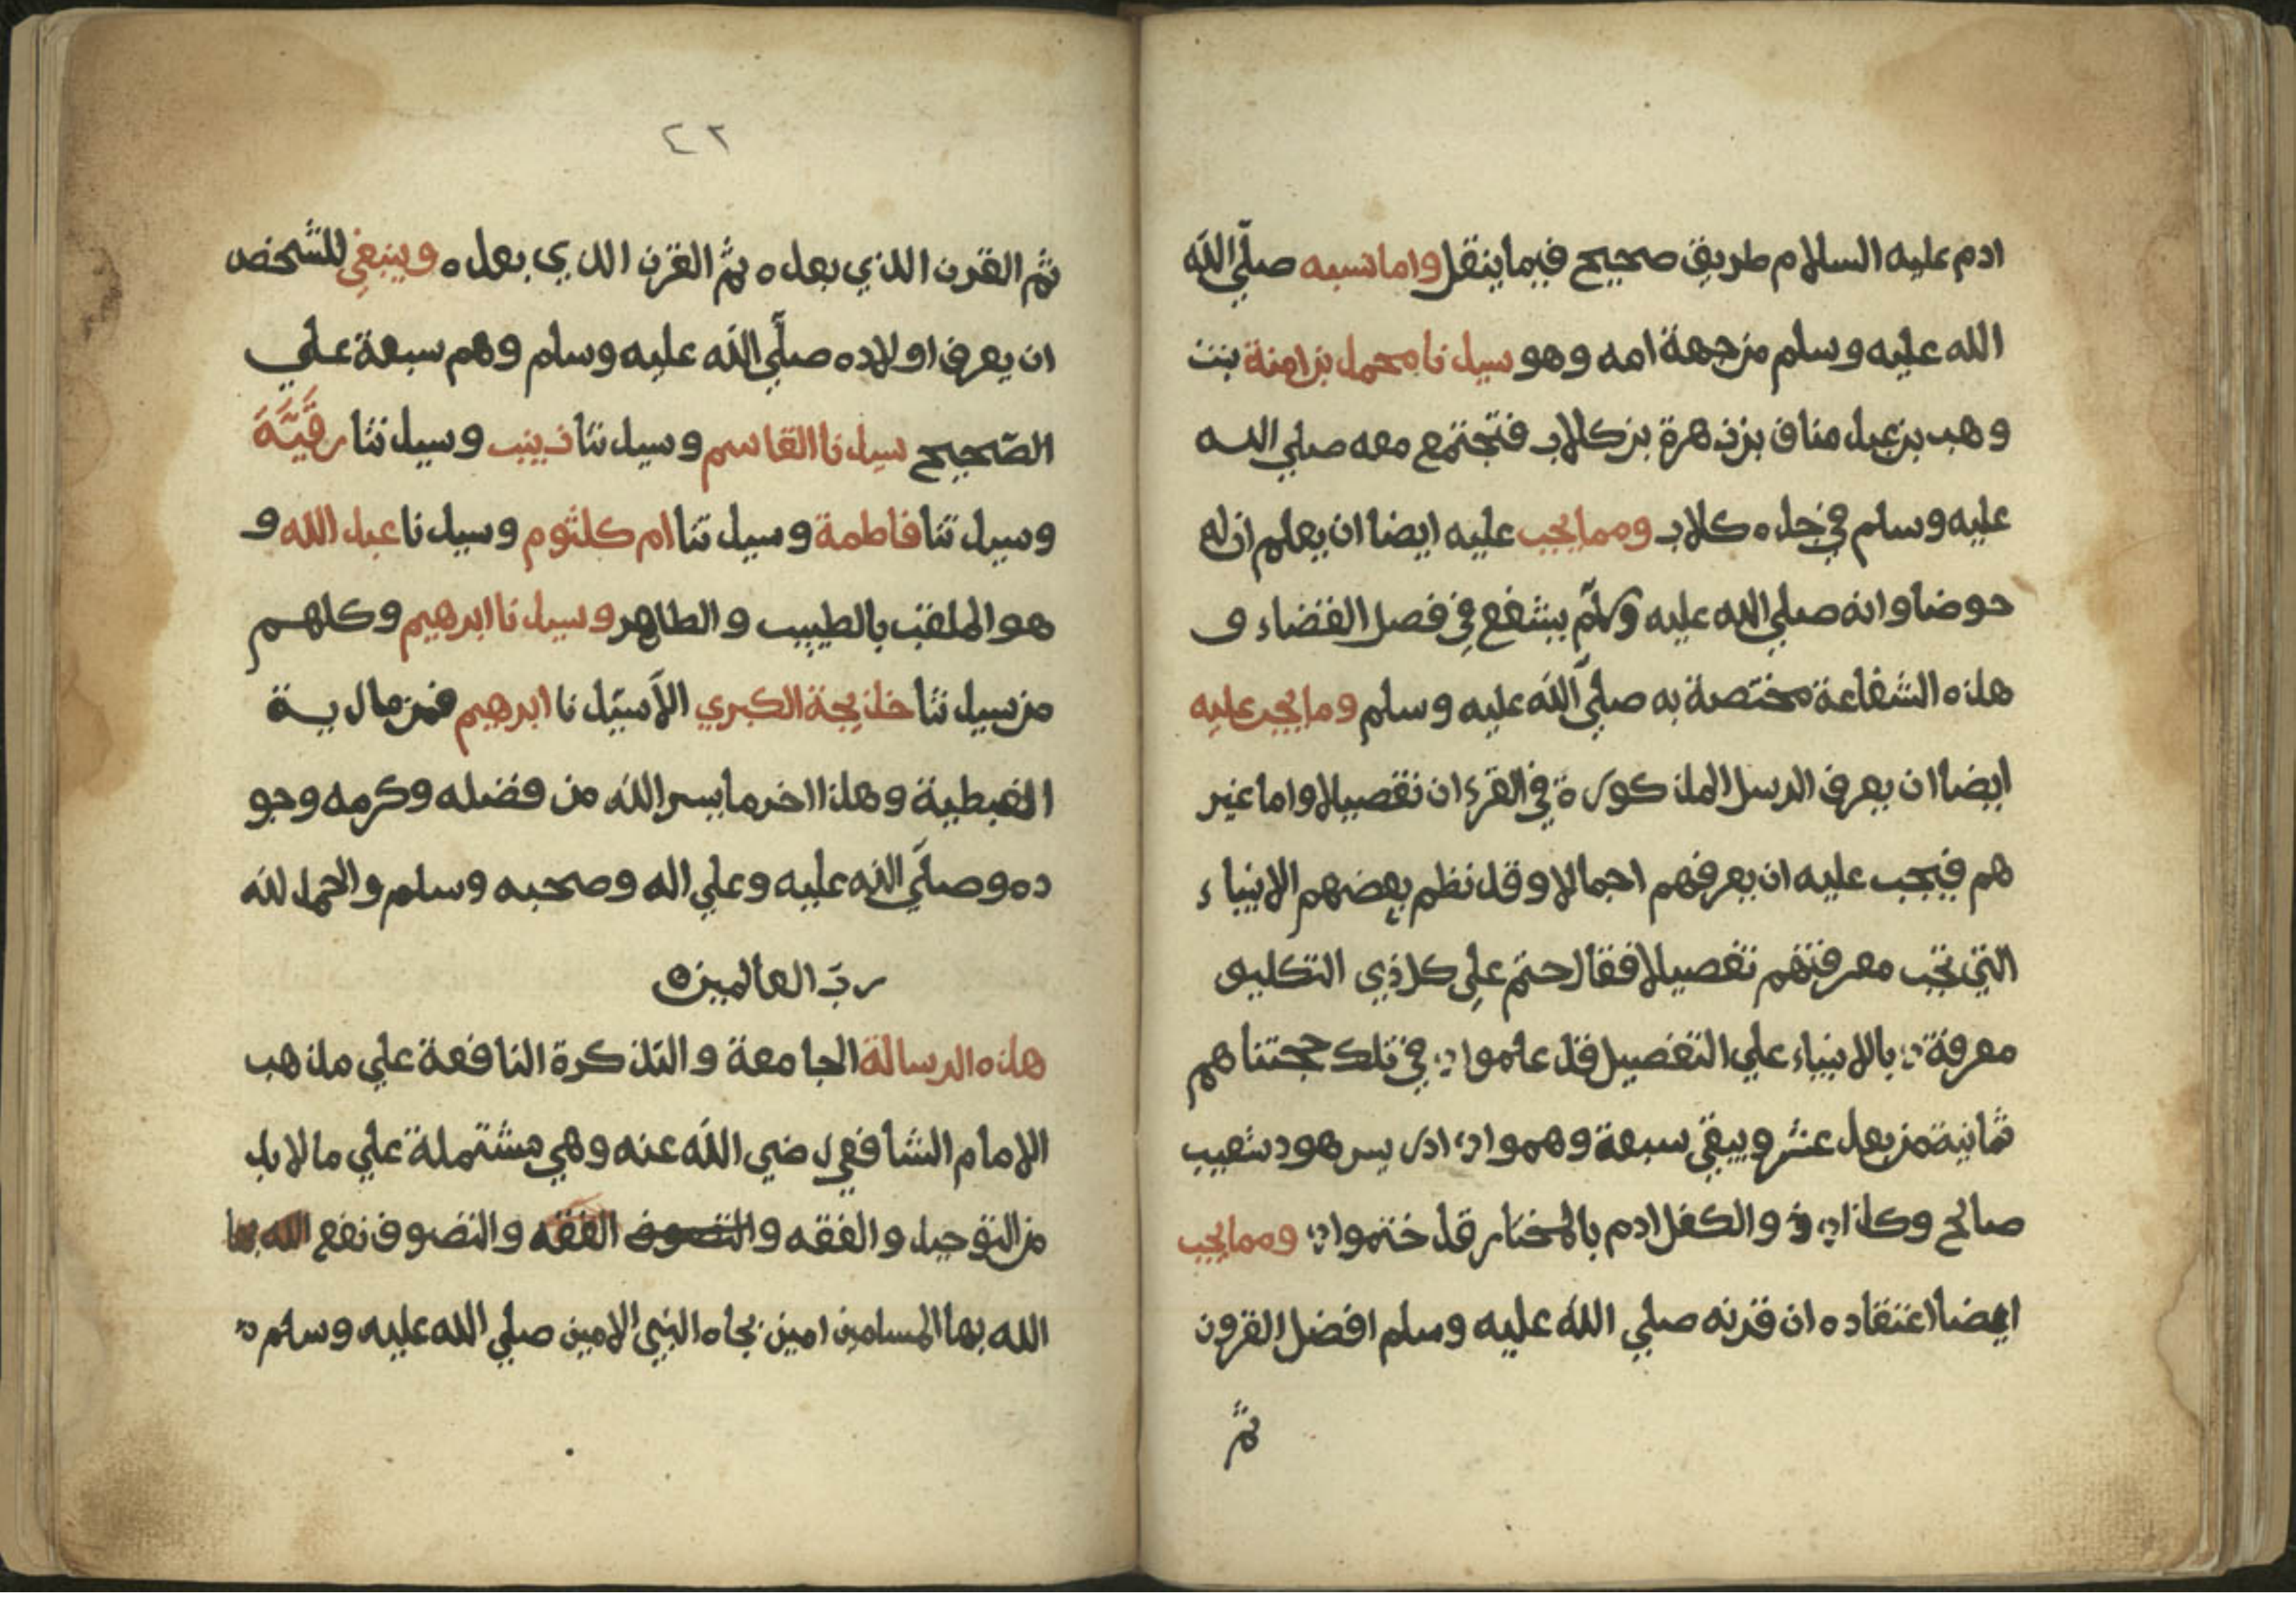 ادم عليه السلام طريق صحيح فيما ينقل واما نسبه صلّي اللّه
الله عليه وسلم من جهة امه وهو سيدنا محمد بن امنة بنت
وهب بن عبد مناف بن زهرة بن كلاب فتجتمع معه صلي الله
عليه وسلم في جده كلاب ومما يجب عليه ايضا ان يعلم ان له
حوضا وانه صلي الله عليه وسلم يشفع في فصل القضاء و
هذه الشفاعة مختصة به صلّي اللّه عليه وسلم وما يجب عليه
ايضا ان يعرف الرسل المذكورة في القرءان تفصيلا واما غير
هم فيجب عليه ان يعرفهم اجمالا وقد نظم بعضهم الانبياء
التي تجب معرفتهم تفصيلا فقال حتم علي كل ذي التكليف
معرفة بالانبياء علي التفصيل قد علموا في تلك حجتنا هم
ثمانية من بعد عشر ويبقي سبعة وهموا ادريس هود شعيب
صالح وكذا ذو والكفل ادم بالمختار قد ختموا ومما يجب
ايضا اعتقاده ان قرنه صلي الله عليه وسلم افضل القرون
ثم
٤٢
ثم القرن الذي بعده ثم القرن الذي بعده وينبغي للشخص
ان يعرف اولاده صلّي اللّه عليه وسلم وهم سبعة علي
الصّحيح سيدنا القاسم وسيدتنا زينب وسيدتنا رقيّة
وسيدتنا فاطمة وسيدتنا ام كلثوم وسيدنا عبد الله و
هو الملقب بالطيب والطاهر وسيدنا ابرهيم وكلهم
من سيدتنا خديجة الكبري الاّ سيّدنا ابرهيم فمن مارية
القبطية وهذا اخر ما يسر اللّه من فضله وكرمه وجو
ده وصلّي اللّه عليه وعلي اله وصحبه وسلم والحمد للّه
ربّ العالمين
هذه الرسالة الجامعة والتذكرة النافعة علي مذهب
الامام الشافعي رضي اللّه عنه وهي مشتملة علي ما لا بد
من التوحيد والفقه والتصوف الفقه والتصوف نفع الله بها
الله بها المسلمين امين بجاه النبي الامين صلي الله عليه وسلم